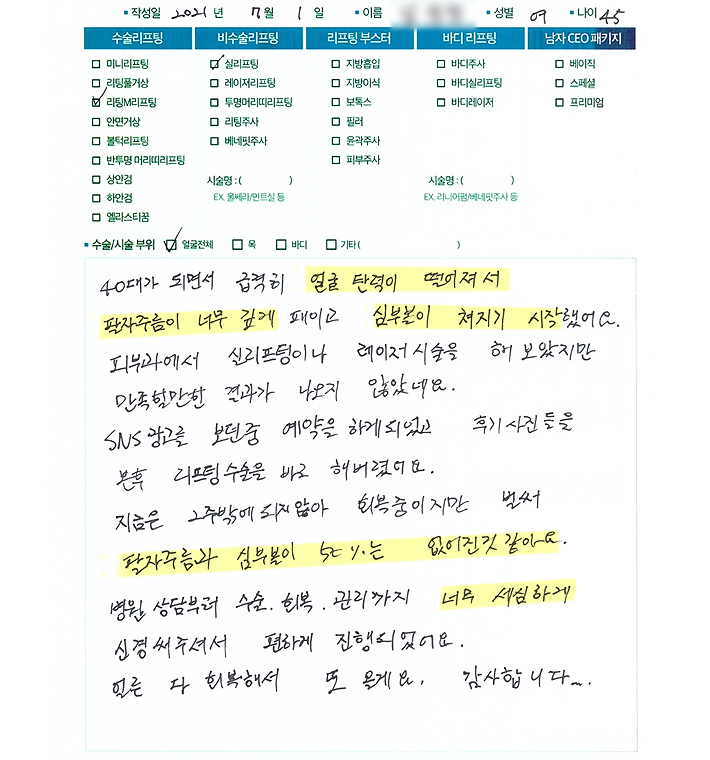 • 작성일 2021 년 7 월 1 일 • 이름 • 성별 여 • 나이 45
수술리프팅 비수술리프팅 리프팅 부스터 바디 리프팅 남자 CEO 패키지
미니리프팅 실리프팅 지방흡입 바디주사 베이직
리팅풀거상 레이저리프팅 지방이식 바디실리프팅 스페셜
리팅M리프팅 투명머리띠리프팅 보톡스 바디레이저 프리미엄
안면거상 리팅주사 필러
볼턱리프팅 베네핏주사 윤곽주사
반투명 머리띠리프팅 피부주사
상안검 시술명 : ( ) 시술명 : ( )
하안검 EX. 울쎄라/민트실 등 EX. 리니어펌/베네핏주사 등
엘라스티꿈
• 수술/시술 부위 얼굴전체 목 바디 기타 ( )
40대가 되면서 급력히 얼굴 탄력이 떨어져서
팔자주름이 너무 깊게 패이고 심부볼이 쳐지기 시작했어요.
피부과에서 실리프팅이나 레이저시술을 해 보았지만
만족할만한 결과가 나오지 않았네요.
SNS 광고를 보던중 예약을 하게되었고 후기사진들을
본후 리프팅수술을 바로 해버렸어요.
지금은 2주밖에 되지않아 회복중이지만 벌써
팔자주름과 심부볼이 50%는 없어진것 같아요.
병원 상담부터 수술.회복.관리까지 너무 세심하게
신경써주셔서 편하게 진행되었어요.
얼른 다 회복해서 또 올게요. 감사합니다~.